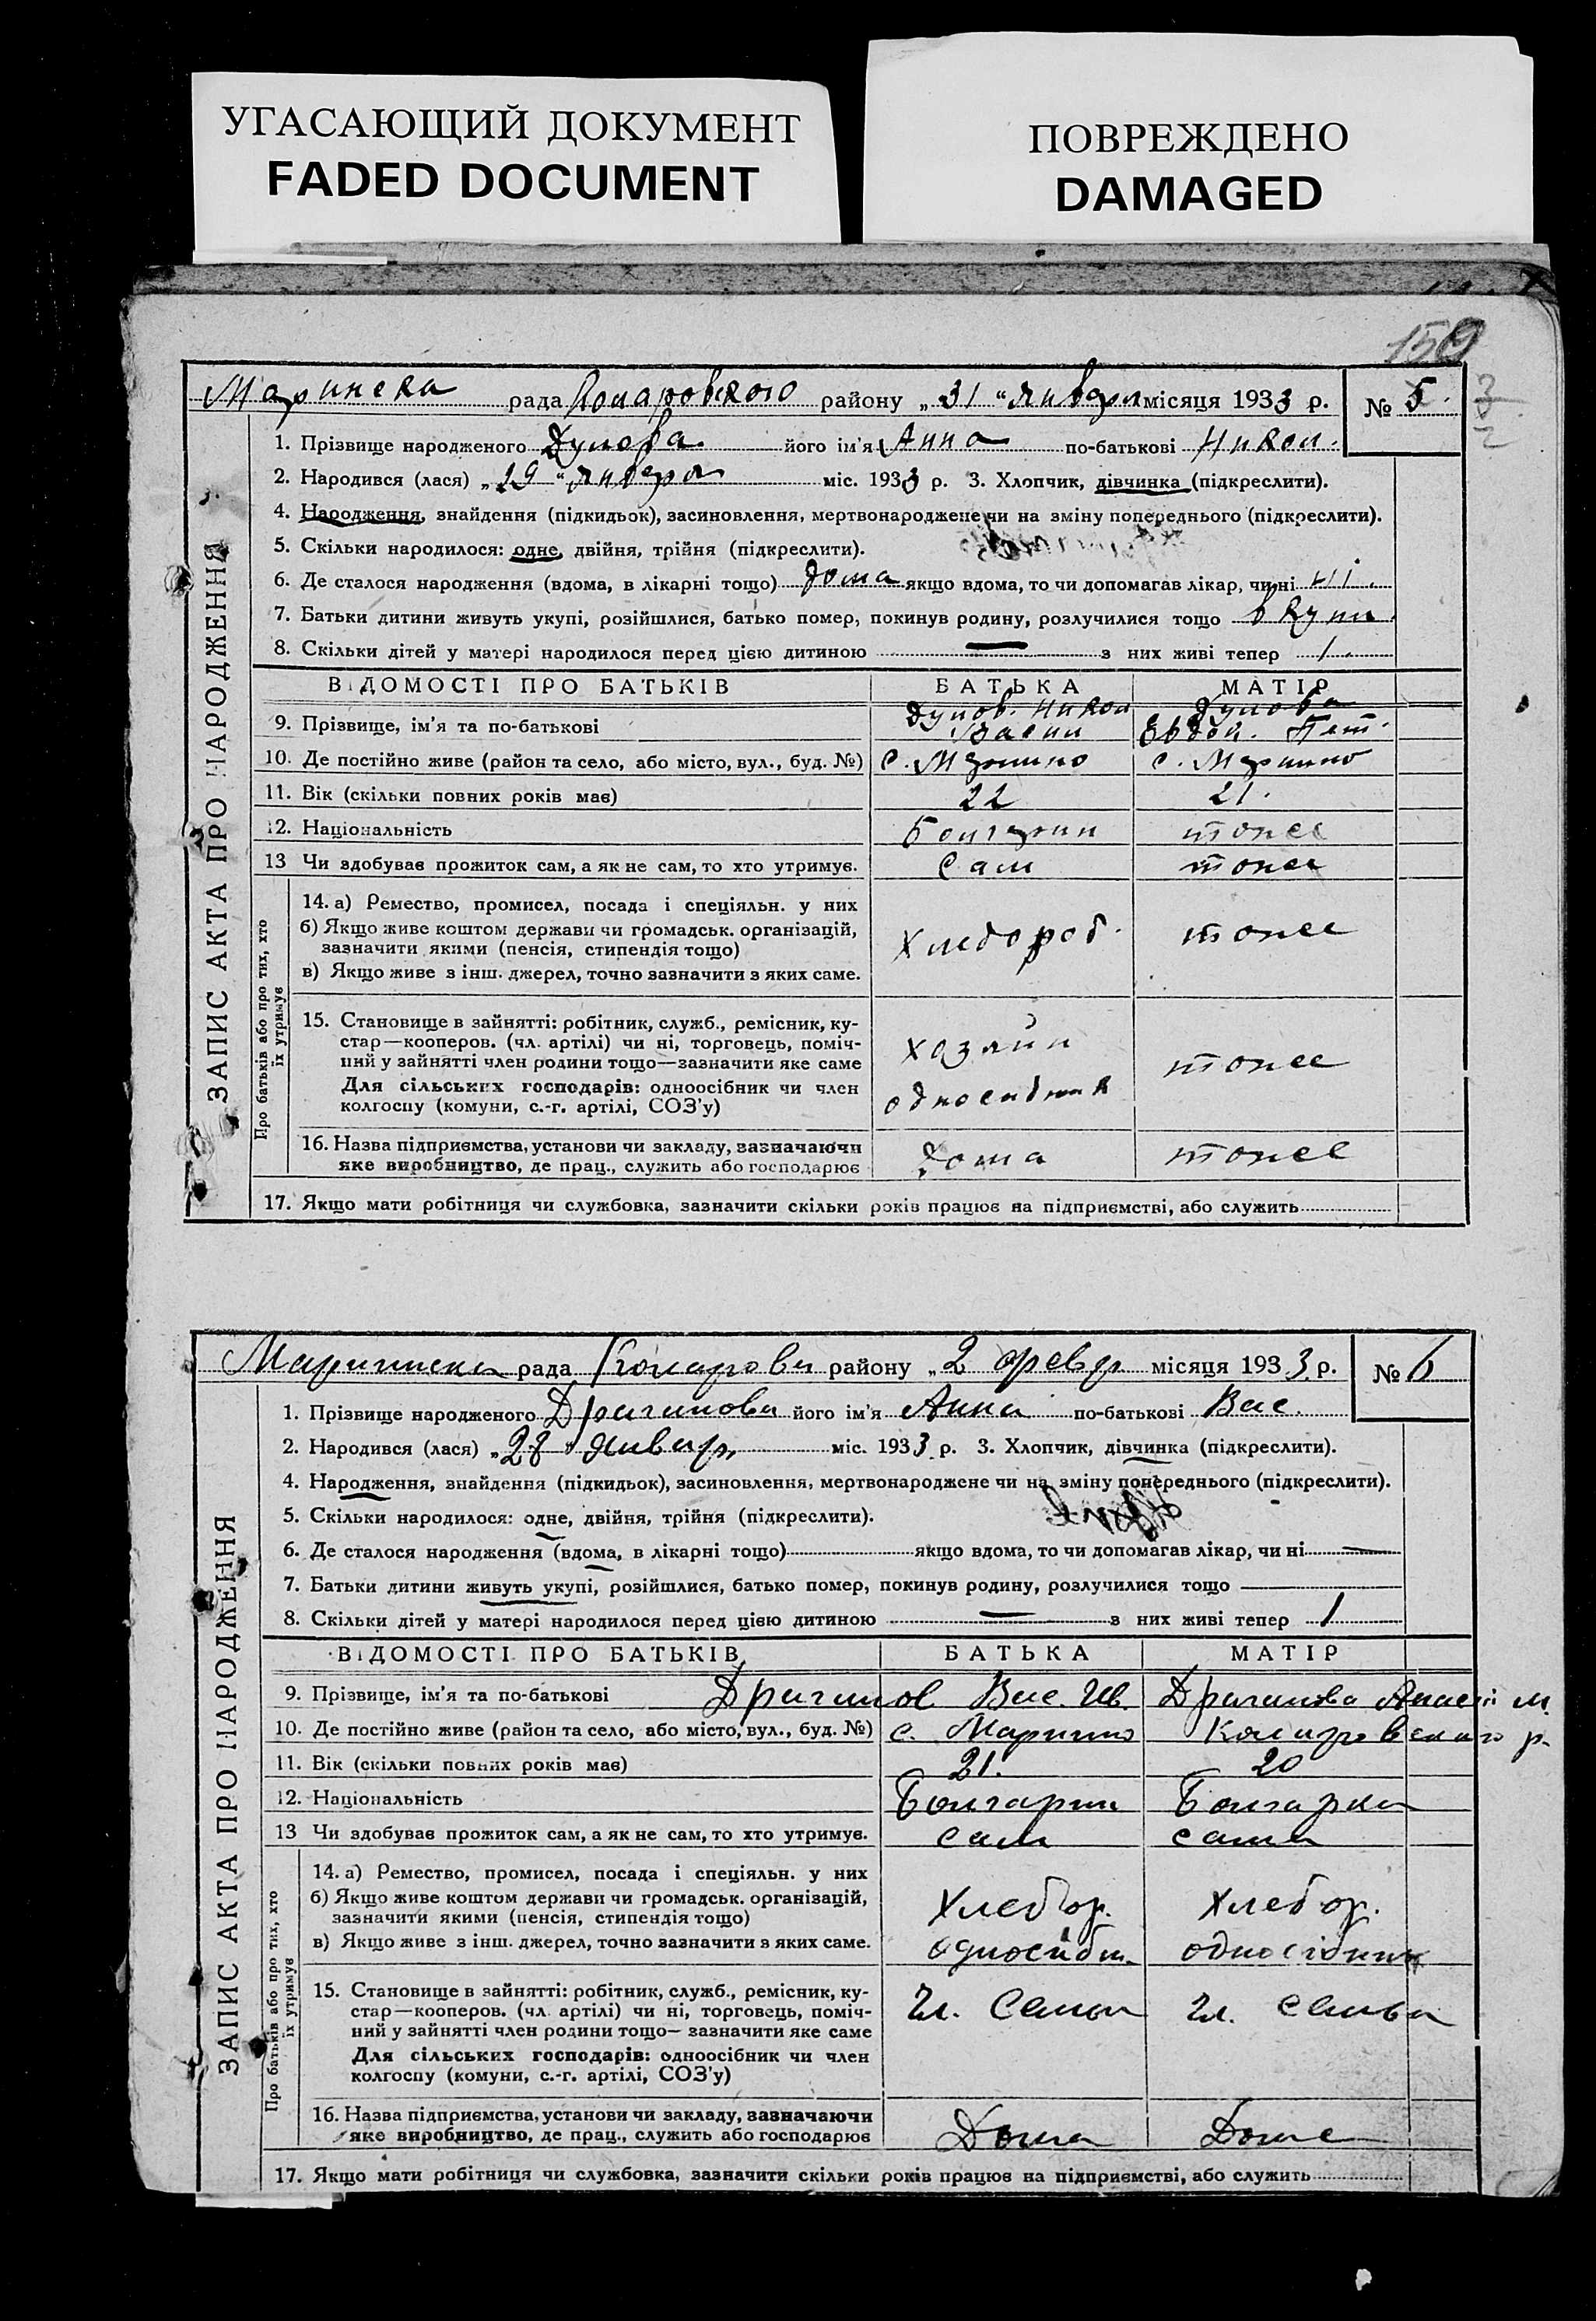 УГАСАЮЩИЙ ДОКУМЕНТ
FADED DOCUMENT
ПОВРЕЖДЕНО
DAMAGED
150
ЗАПИС АКТА ПРО НАРОДЖЕННЯ
Маринска рада Комаровского району „31“ января місяця 1933 р. № 5.
3/2
1. Прізвище народженого Дулова його ім'я Анна по-батькові Никол.
2. Народився (лася) „29“ января міс. 1933 р. 3. Хлопчик, дівчинка (підкреслити).
4. Народження, знайдення (підкидьок), засиновлення, мертвонароджене чи на зміну попереднього (підкреслити).
5. Скільки народилося: одне, двійня, трійня (підкреслити).
6. Де сталося народження (вдома, в лікарні тощо) дома якщо вдома, то чи допомагав лікар, чи ні ні.
7. Батьки дитини живуть укупі, розійшлися, батько помер, покинув родину, розлучилися тощо вкупи.
8. Скільки дітей у матері народилося перед цією дитиною — з них живі тепер 1.
ВІДОМОСТІ ПРО БАТЬКІВ БАТЬКА МАТІР
9. Прізвище, ім'я та по-батькові Дулов. Никол Васил Дулова Евдок. Пет.
10. Де постійно живе (район та село, або місто, вул., буд. №) с. Марино с. Марино
11. Вік (скільки повних років має) 22 21.
12. Національність Болгарин тоже
13 Чи здобував прожиток сам, а як не сам, то хто утримує. Сам тоже
Про батьків або про тих, хто їх утримує
14. а) Ремество, промисел, посада і спеціяльн. у них
б) Якщо живе коштом держави чи громадськ. організацій,
зазначити якими (пенсія, стипендія тощо) Хлебороб. тоже
в) Якщо живе з інш. джерел, точно зазначити з яких саме.
15. Становище в зайнятті: робітник, служб., ремісник, ку-
стар—кооперов. (чл. артілі) чи ні, торговець, поміч- хозяин
ний у зайнятті член родини тощо—зазначити яке саме тоже
Для сільських господарів: одноосібник чи член
колгоспу (комуни, с.-г. артілі, СОЗ'у)
16. Назва підприємства, установи чи закладу, зазначаючи
яке виробництво, де прац., служить або господарює дома тоже
17. Якщо мати робітниця чи службовка, зазначити скільки років працює на підприємстві, або служить
ЗАПИС АКТА ПРО НАРОДЖЕННЯ
рада району „2 февр місяця 1933 р. № 6
1. Прізвище народженого Драганова його ім'я Анна по-батькові Вас.
2. Народився (лася) „28“ январ міс. 1933 р. 3. Хлопчик, дівчинка (підкреслити).
4. Народження, знайдення (підкидьок), засиновлення, мертвонароджене чи на зміну попереднього (підкреслити).
5. Скільки народилося: одне, двійня, трійня (підкреслити).
6. Де сталося народження (вдома, в лікарні тощо) якщо вдома, то чи допомагав лікар, чи ні —
7. Батьки дитини живуть укупі, розійшлися, батько помер, покинув родину, розлучилися тощо —
8. Скільки дітей у матері народилося перед цією дитиною — з них живі тепер 1
ВІДОМОСТІ ПРО БАТЬКІВ БАТЬКА МАТІР
9. Прізвище, ім'я та по-батькові Драганов Вас. Ив. Драганова М.
10. Де постійно живе (район та село, або місто, вул., буд. №) с. Марино Комаровского р.
11. Вік (скільки повних років має) 21. 20
12. Національність Болгарин Болгарка
13 Чи здобував прожиток сам, а як не сам, то хто утримує. сам сама
Про батьків або про тих, хто їх утримує
14. а) Ремество, промисел, посада і спеціяльн. у них
б) Якщо живе коштом держави чи громадськ. організацій,
зазначити якими (пенсія, стипендія тощо) Хлебор. Хлебор.
в) Якщо живе з інш. джерел, точно зазначити з яких саме.
15. Становище в зайнятті: робітник, служб., ремісник, ку-
стар—кооперов. (чл. артілі) чи ні, торговець, поміч- Чл. Семьи Чл. семьи
ний у зайнятті член родини тощо— зазначити яке саме
Для сільських господарів: одноосібник чи член
колгоспу (комуни, с.-г. артілі, СОЗ'у)
16. Назва підприємства, установи чи закладу, зазначаючи
яке виробництво, де прац., служить або господарює Дома Доме
17. Якщо мати робітниця чи службовка, зазначити скільки років працює на підприємстві, або служить